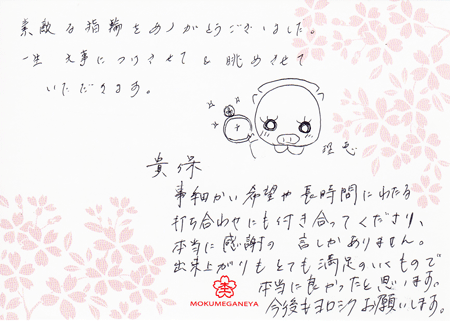 素敵な指輪をありがとうございました。
一生 大事につけさせて & 眺めさせて
いただきます。
理志
貴保
事細かい希望や長時間にわたる
打ち合わせにも付き合ってくださり、
本当に感謝の言しかありません。
出来上がりもとても満足のいくもので
本当に良かったと思います。
今後もヨロシクお願いします。
MOKUMEGANEYA